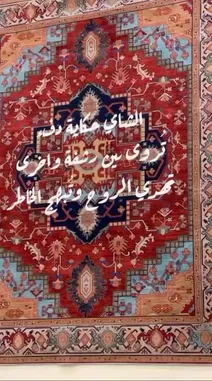 للشاي حكاية دفء
تروى بين رشفة وأخرى
تهدي الروح وتبهج الخاطر